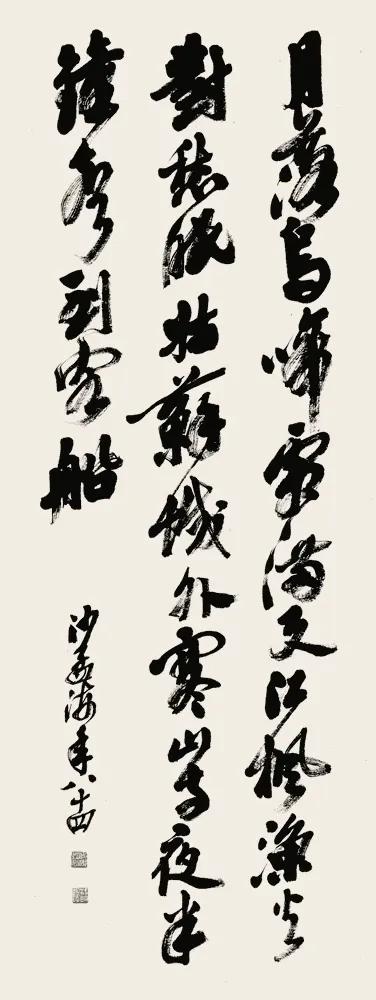 月落烏啼霜滿天江楓漁火
對愁眠姑蘇城外寒山寺夜半
鐘聲到客船
沙孟海年八十四